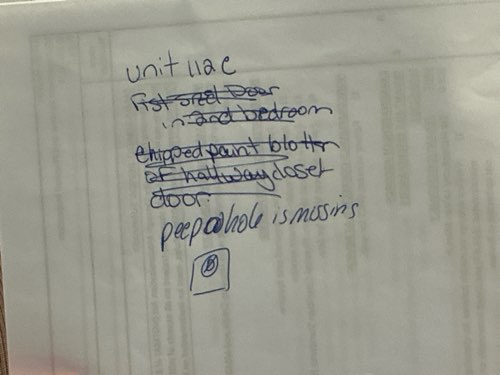 unit 112c
Fist sized Door
in 2nd bedroom
chipped paint bottom
of hallway closet
door.
peep hole is missing